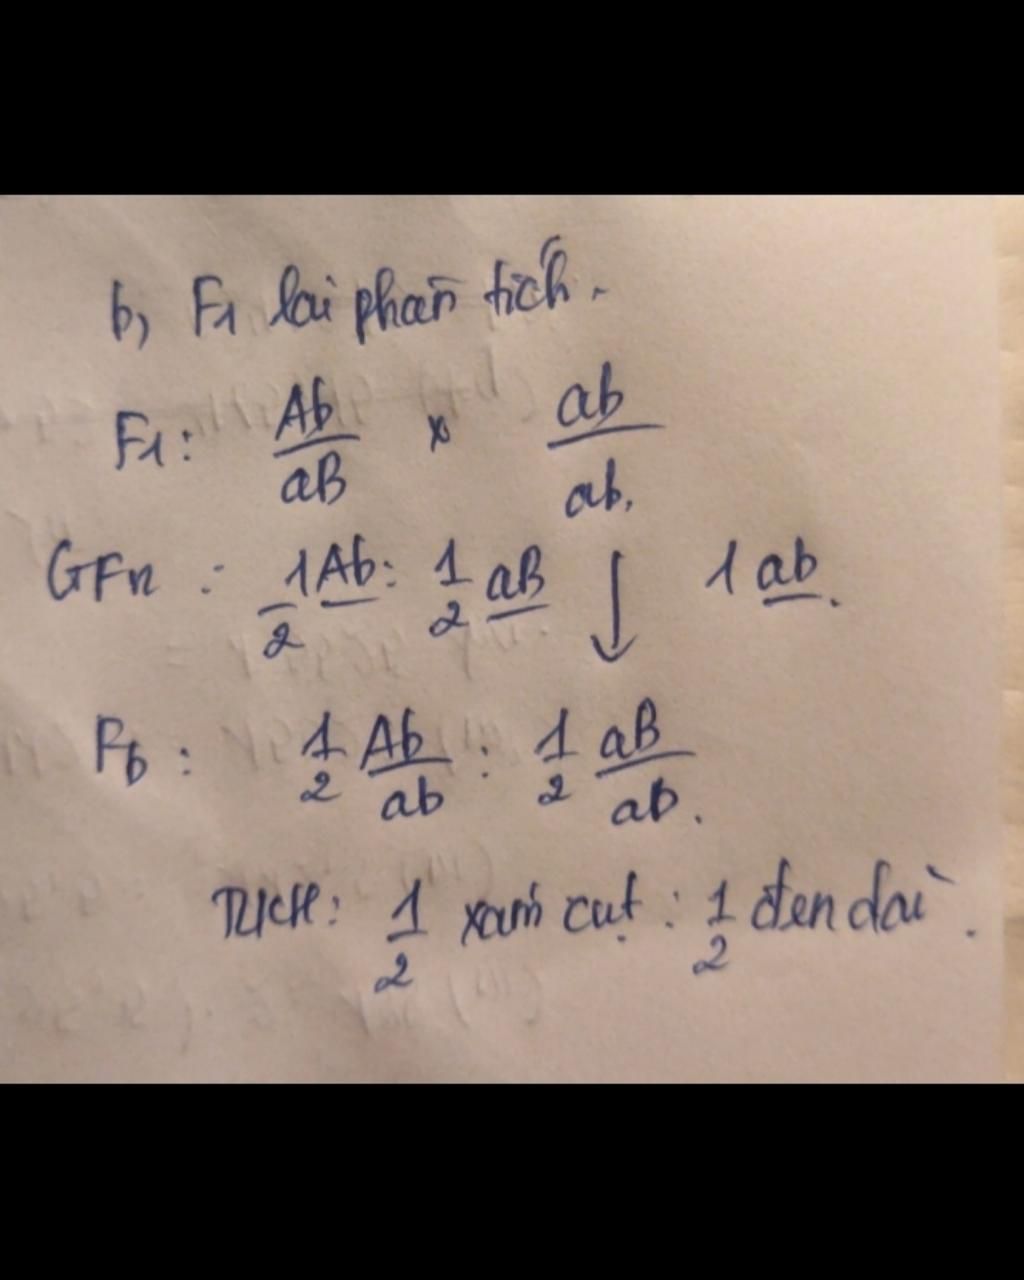 b, F1 lai phân tích.
F1: Ab/aB x ab/ab.
GF1 : 1/2 Ab : 1/2 aB ↓ 1 ab.
Fb : 1/2 Ab/ab : 1/2 aB/ab.
TLKH: 1/2 xám cụt : 1/2 đen dài.